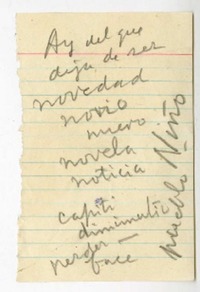 Ay del que
deja de ser
novedad
novio
nuevo
novela
noticia
capiti
diminutio
perder —
face
Niño